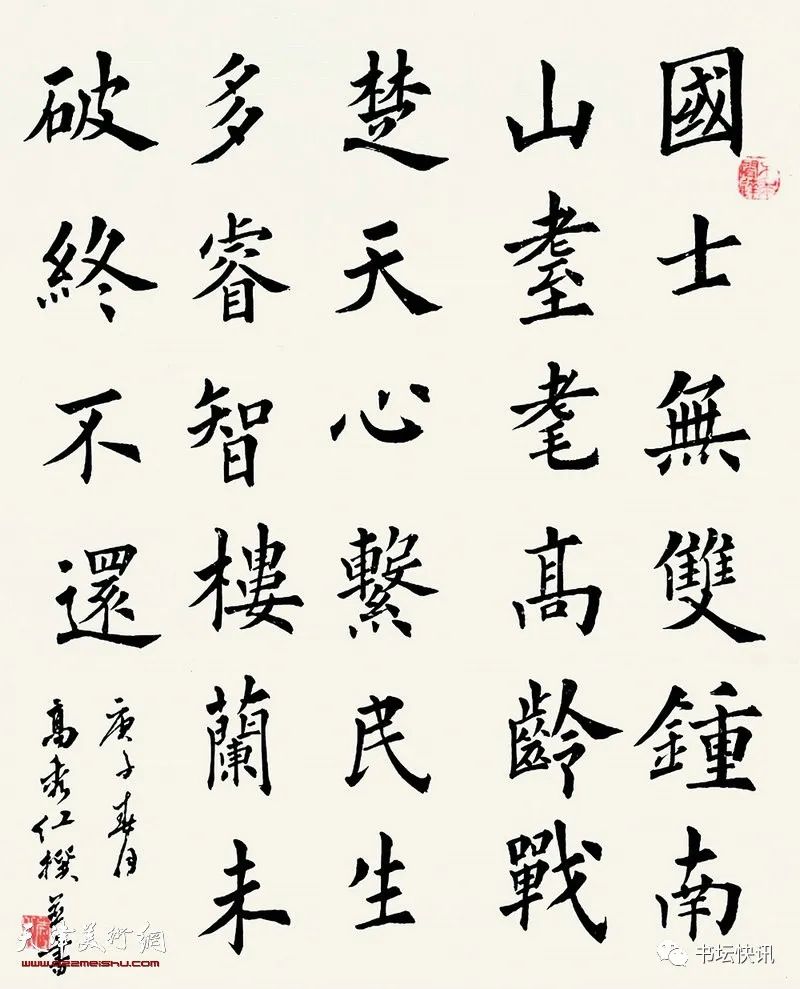 國士無雙鍾南
山耋耄高齡戰
楚天心繫民生
多睿智樓蘭未
破終不還
庚子春月
高秀仁撰并書
天津美術網
www.022meishu.com
书坛快讯